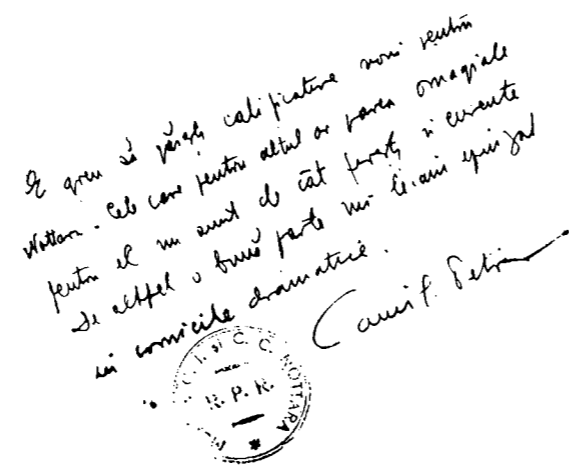 E greu să găsești calificative noui pentru
Nottara. Cele care pentru altul ar părea omagiale
pentru el nu sunt de cât firești și curente
De altfel o bună parte mi le-am epuizat
în cronicile dramatice.
Camil Petrescu
C. I. ȘI C. C. NOTTARA
R. P. R.